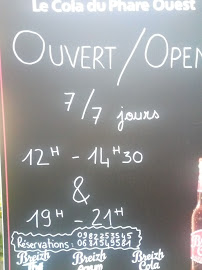 Le Cola du Phare Ouest
OUVERT / OPEN
7/7 jours
12H - 14H30
&
19H - 21H
Réservations : 0982253545
0631543581
Breizh Breizh Breizh
Thé Agrum Cola